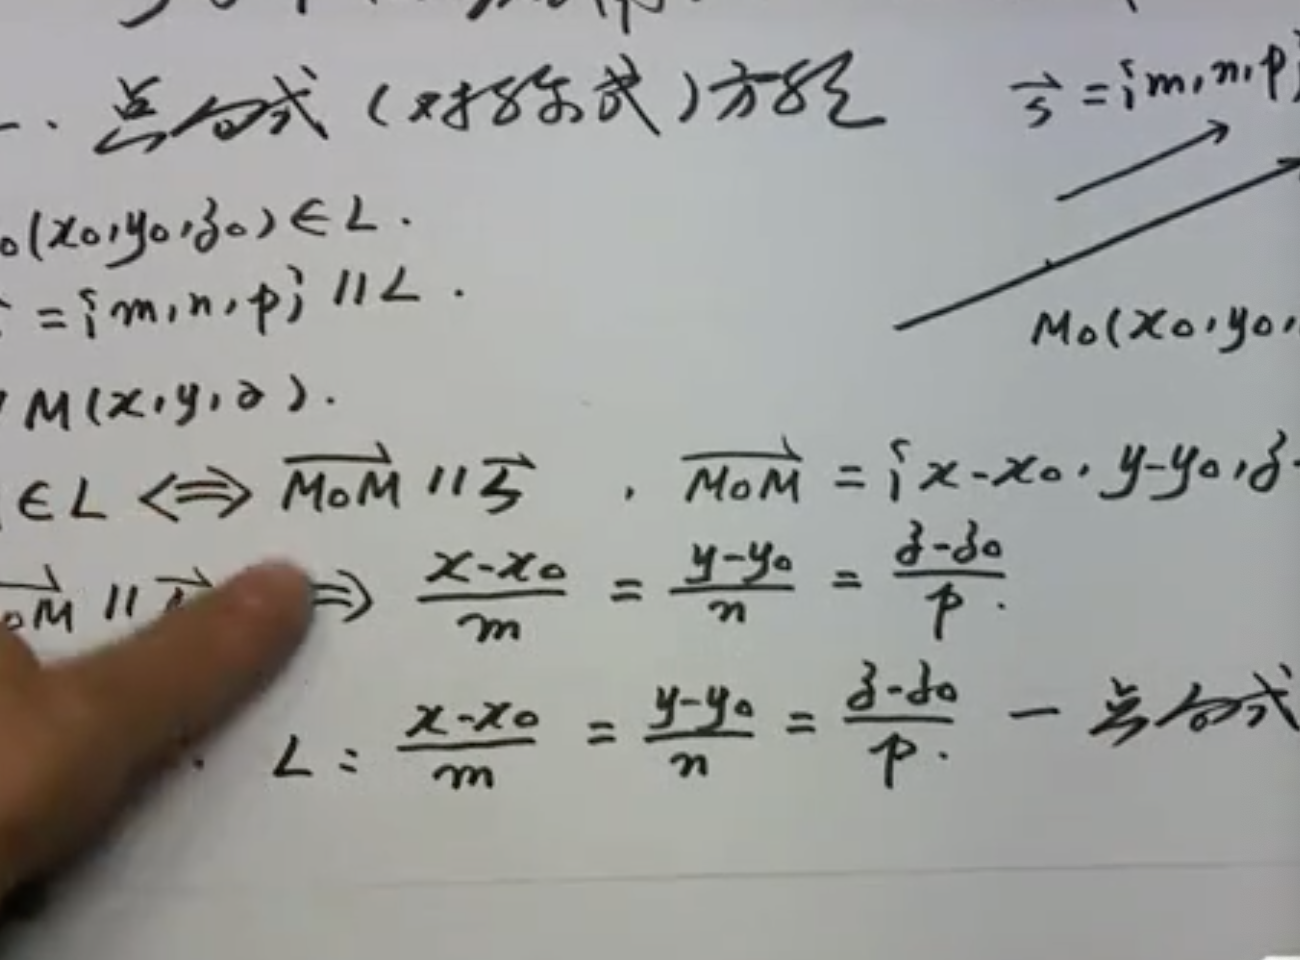 一. 点向式(对称式)方程
s⃗ = {m, n, p}
0(x0, y0, z0) ∈ L.
= {m, n, p} // L.
M0(x0, y0,
M(x, y, z).
∈ L ⟺ M0M⃗ // s⃗ , M0M⃗ = {x-x0, y-y0, z-
0M⃗ // s⃗ ⟹ (x-x0)/m = (y-y0)/n = (z-z0)/p.
L: (x-x0)/m = (y-y0)/n = (z-z0)/p. — 点向式